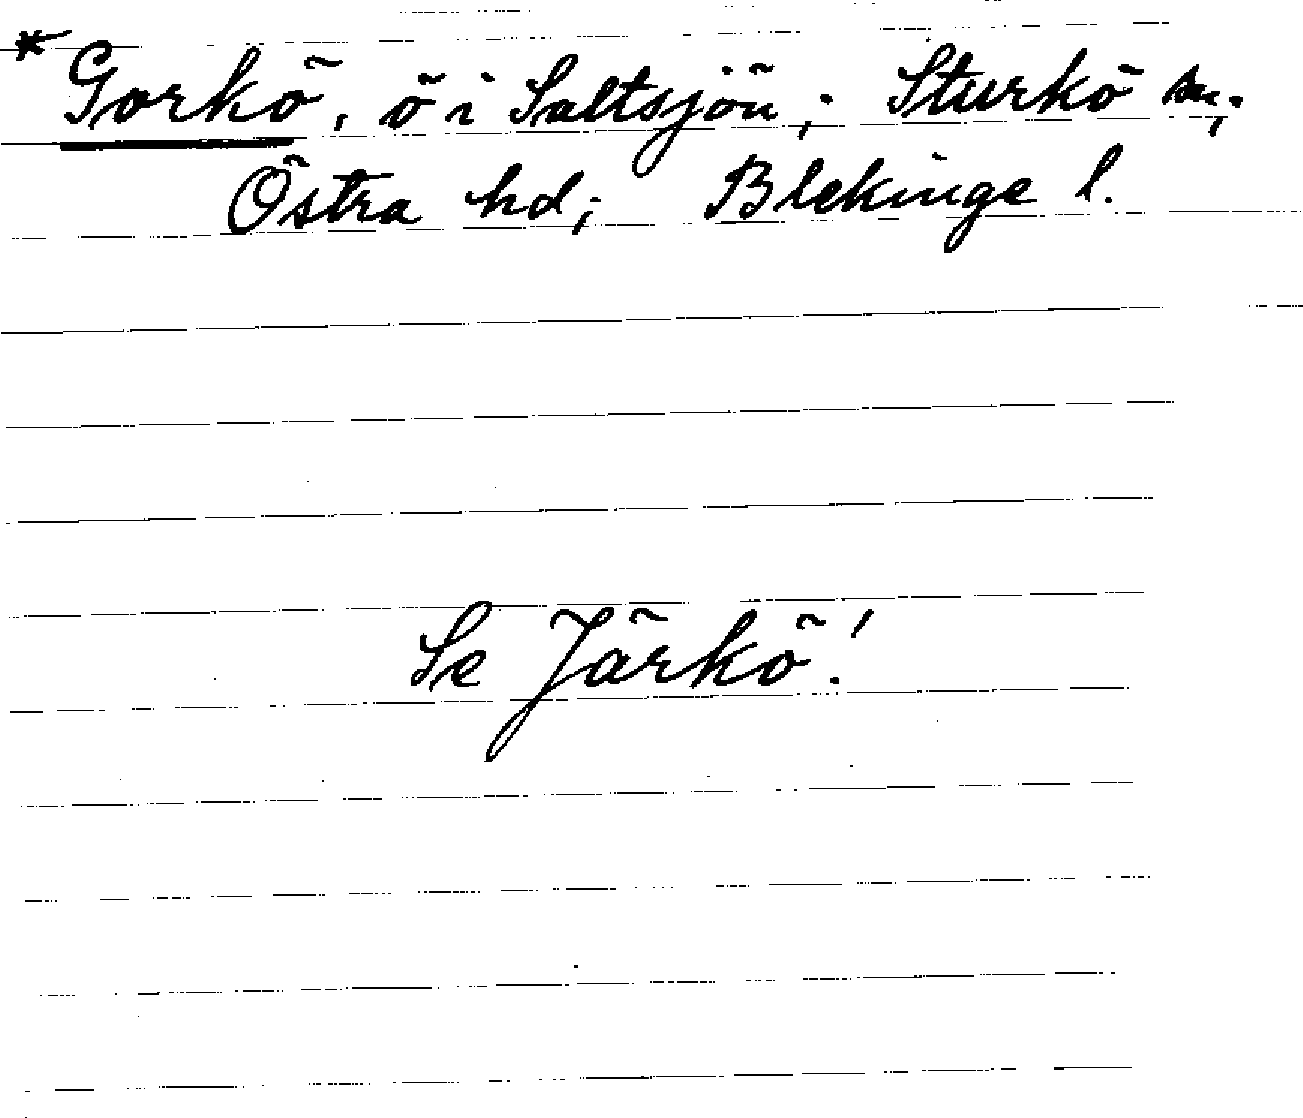 * Gorkö, ö i Saltsjön; Sturkö sn;
Östra hd; Blekinge l.
Se Järkö!